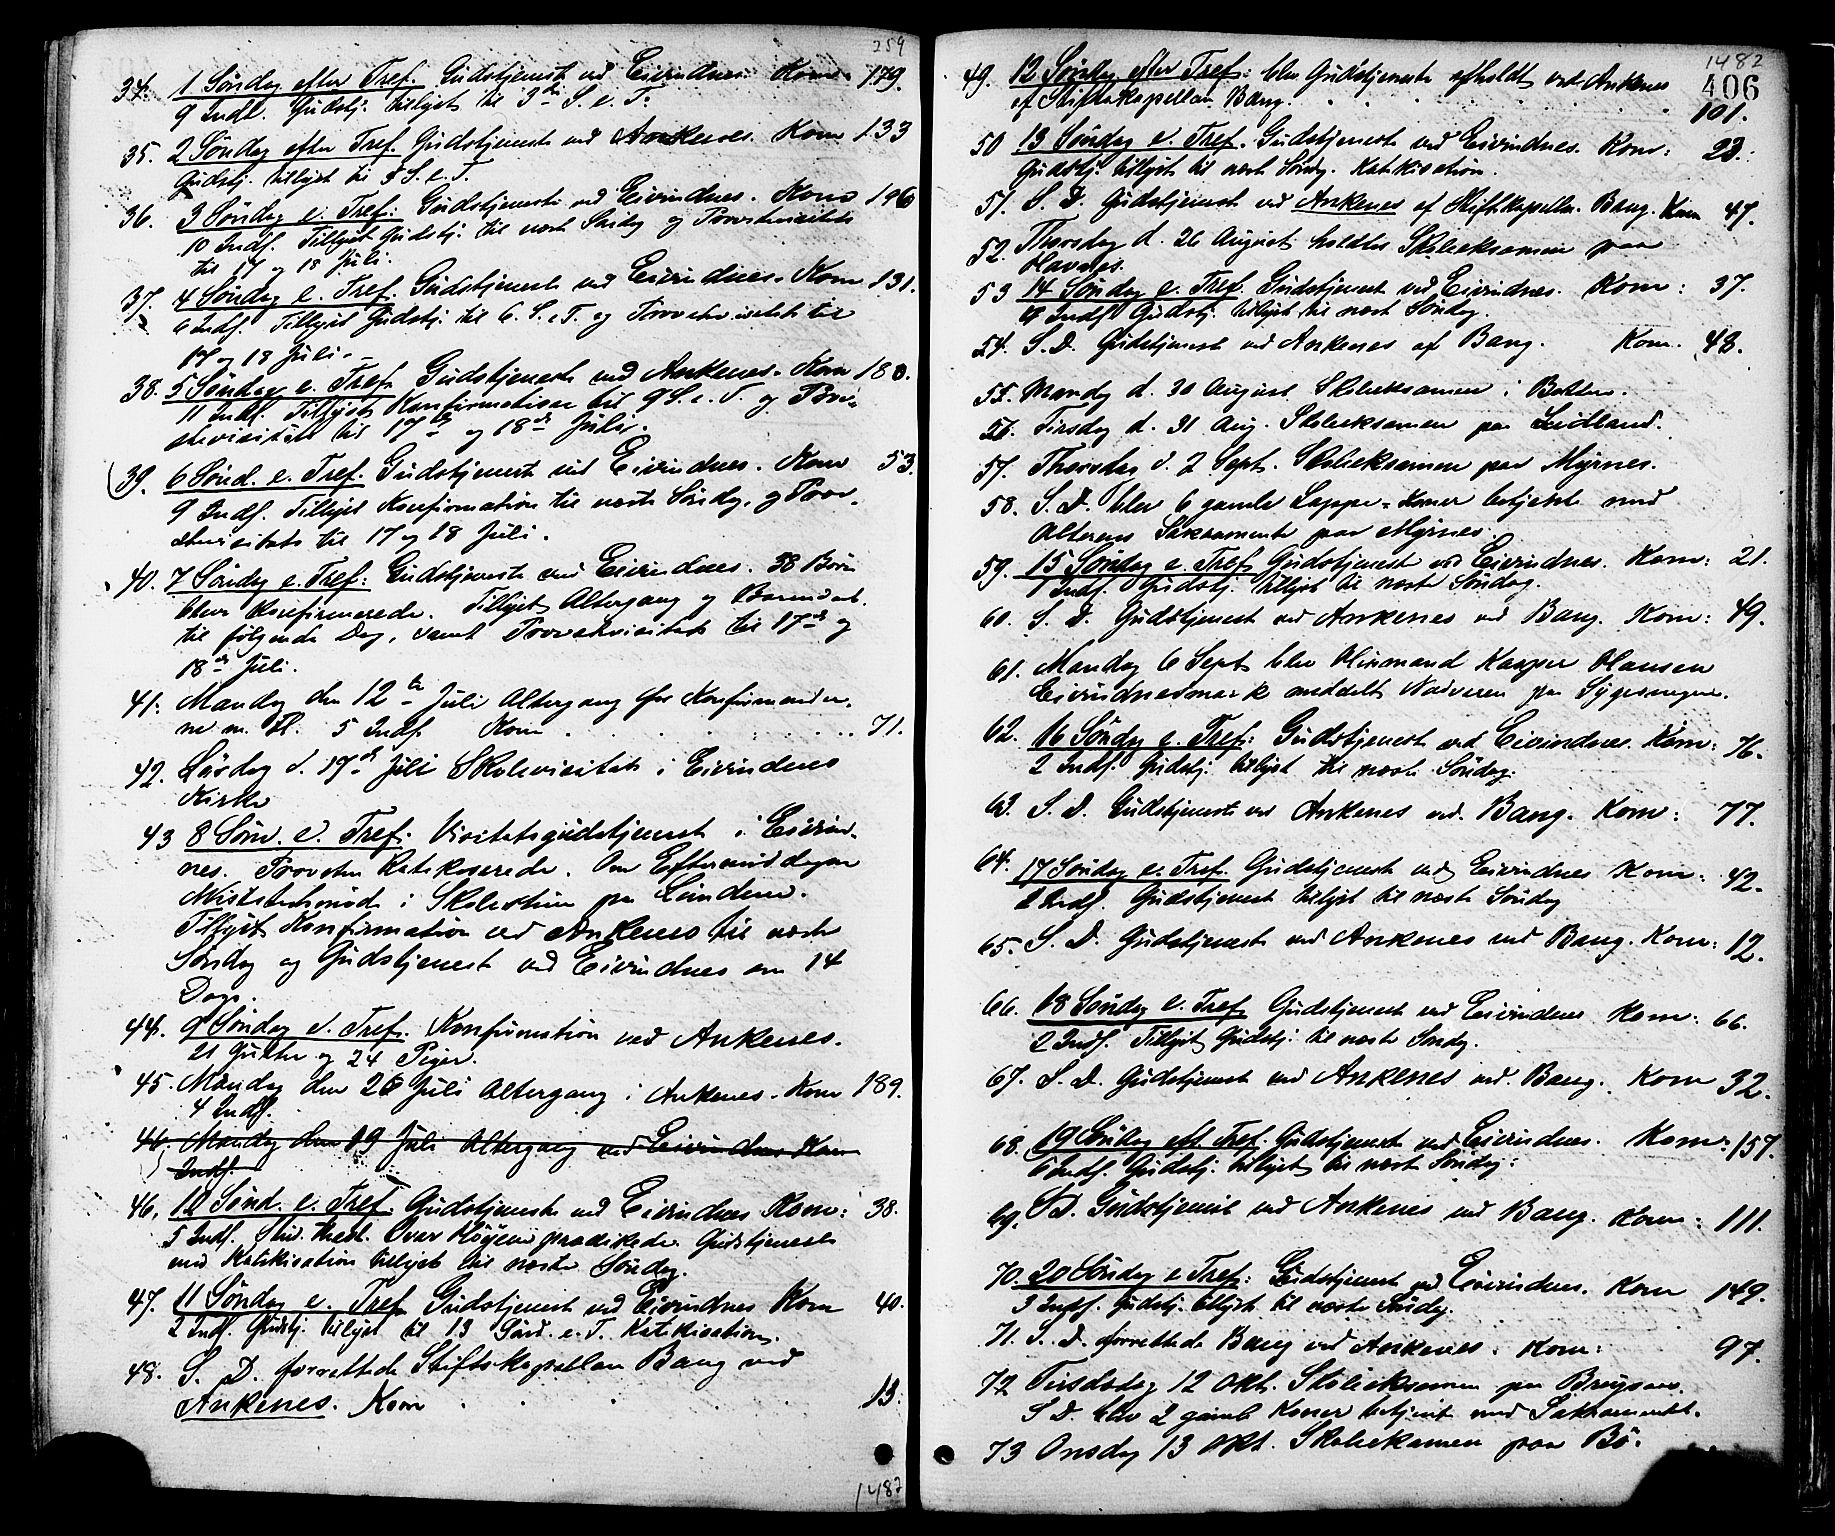 259
34. 1 Söndag efter Tref. Gudstjeneste ved Eivindnes. Kom. 179.
9 Indl. Gudstj. tillyst til 3die S. e. T.
35. 2 Söndag efter Tref. Gudstjeneste ved Ankenes. Kom 133
Gudstj. tillyst til S. e. T.
36. 3 Söndag e. Tref. Gudstjeneste ved Eivindnes. Kom 196
10 Indf. Tillyst Gudstj. til næst Søndag og Provstevisitats
til 17 og 18 Juli.
37. 4 Söndag e. Tref. Gudstjeneste ved Eivindnes. Kom 131.
6 Indf. Tillyst Gudstj. til 6. S. e. T. og Provstevisitats til
17 og 18 Juli.
38. 5 Söndag e. Tref. Gudstjeneste ved Ankenes. Kom 180.
11 Indl. Tillyst Konfirmation til 9 S. e. T. og Prov-
stevisitats til 17de og 18de Juli.
39. 6 Sönd. e. Tref. Gudstjeneste ved Eivindnes. Kom 53.
9 Indf. Tillyst Konfirmation til næste Söndag, og Prov-
stevisitats til 17 og 18 Juli.
40. 7 Söndag e. Tref: Gudstjeneste ved Eivindnes. 38 Börn
bleve konfirmerede. Tillyst Altergang og
til følgende Dag, samt Provstevisitats til 17de og
18de Juli.
41. Mandag den 12te Juli Altergang for Konfirmander-
ne m. fl. 5 Indf. Kom 71.
42. Lørdag d. 17de Juli Skolevisitats i Eivindnes
Kirke
43 8 Sön. e. Tref: Visitatsgudstjeneste i Eivind-
nes. Provsten katekiserede. Om Eftermiddagen
i Skolestuen paa
Tillyst Konfirmation ved Ankenes til næste
Søndag og Gudstjeneste ved Eivindnes om 14
Dage.
44. 9 Söndag e. Tref. Konfirmation ved Ankenes.
21 Gutter og 24 Piger.
45. Mandag den 26 Juli Altergang i Ankenes. Kom 189.
4 Indf.
46. Mandag den 19 Juli Altergang ved Eivindnes Kom
Indf.
46. 10 Sönd. e. Tref. Gudstjeneste ved Eivindnes Kom: 38.
5 Indf. Stud. theol. Over prædikede. Gudstjeneste
med Katekisation tillyst til næste Söndag.
47. 11 Söndag e. Tref Gudstjeneste ved Eivindnes Kom 40.
2 Indf. Gudstj. tillyst til 13 Sönd. e. T. Katekisation.
48. S. D. forrettede Stiftskapellan Bang ved
Ankenes. Kom 13.
1482
1482
406
49. 12 Söndag efter Tref: blev Gudstjeneste afholdt ved Ankenes
af Stiftskapellan Bang. 101.
50 13 Söndag e. Tref. Gudstjeneste ved Eivindnes. Kom: 23.
Gudstj. tillyst til næst Söndag. Katekisation.
51. S. D. Gudstjenest ved Ankenes af Stiftskapellan Bang. Kom 47.
52. Thorsdag d. 26 August holdtes Skoleeksamen paa
Havnes.
53 14 Söndag e. Tref. Gudstjenest ved Eivindnes. Kom: 37.
Indf. Gudstj. tillyst til næst Söndag.
54. S. D. Gudstjenest ved Ankenes af Bang. Kom. 48.
55. Mandag d. 30 August Skoleeksamen i
56. Tirsdag d. 31 Aug. Skoleeksamen paa
57. Thorsdag d. 2 Sept. Skoleeksamen paa Myrnes.
58. S. D. blev 6 gamle Lappe-Koner betjente med
Alterens Sakramente paa Myrnes.
59. 15 Söndag e. Tref Gudstjenest ved Eivindnes. Kom: 21.
1 Indf. Gudstj. tillyst til næst Söndag.
60. S. D. Gudstjenest ved Ankenes ved Bang. Kom: 49.
61. Mandag 6 Sept blev Kasper Hansen
Eivindnesmark meddelt Nadveren paa Sygesengen.
62. 16 Söndag e. Tref: Gudstjenest ved Eivindnes. Kom: 76.
2 Indf. Gudstj. tillyst til næste Söndag.
63. S. D. Gudstjeneste ved Ankenes ved Bang. Kom: 77.
64. 17 Söndag e. Tref. Gudstjenest ved Eivindnes Kom: 42.
Indf. Gudstjenest tillyst til næste Söndag
65. S. D. Gudstjeneste ved Ankenes ved Bang. Kom: 12.
66. 18 Söndag e. Tref Gudstjenest ved Eivindnes Kom: 66.
2 Indf. Tillyst Gudstj. til næste Söndag.
67. S. D. Gudstjenest ved Ankenes ved Bang. Kom 32.
68. 19 Söndag eft Tref. Gudstjenest ved Eivindnes. Kom: 157.
6 Indf. Gudstj. tillyst til næst Söndag:
69. S D. Gudstjenest ved Ankenes ved Bang. Kom: 111.
70. 20 Söndag e Tref: Gudstjenest ved Eivindnes. Kom 149.
3 Indf. Gudstj. tillyst til næste Söndag.
71. S. D. forrettede Bang ved Ankenes. Kom: 97.
72 Tirsdag 12 Okt. Skoleeksamen paa
S D. blev 2 gamle Koner betjent med Sakramentet.
73 Onsdag 13 Okt. Skoleeksamen paa Bö.